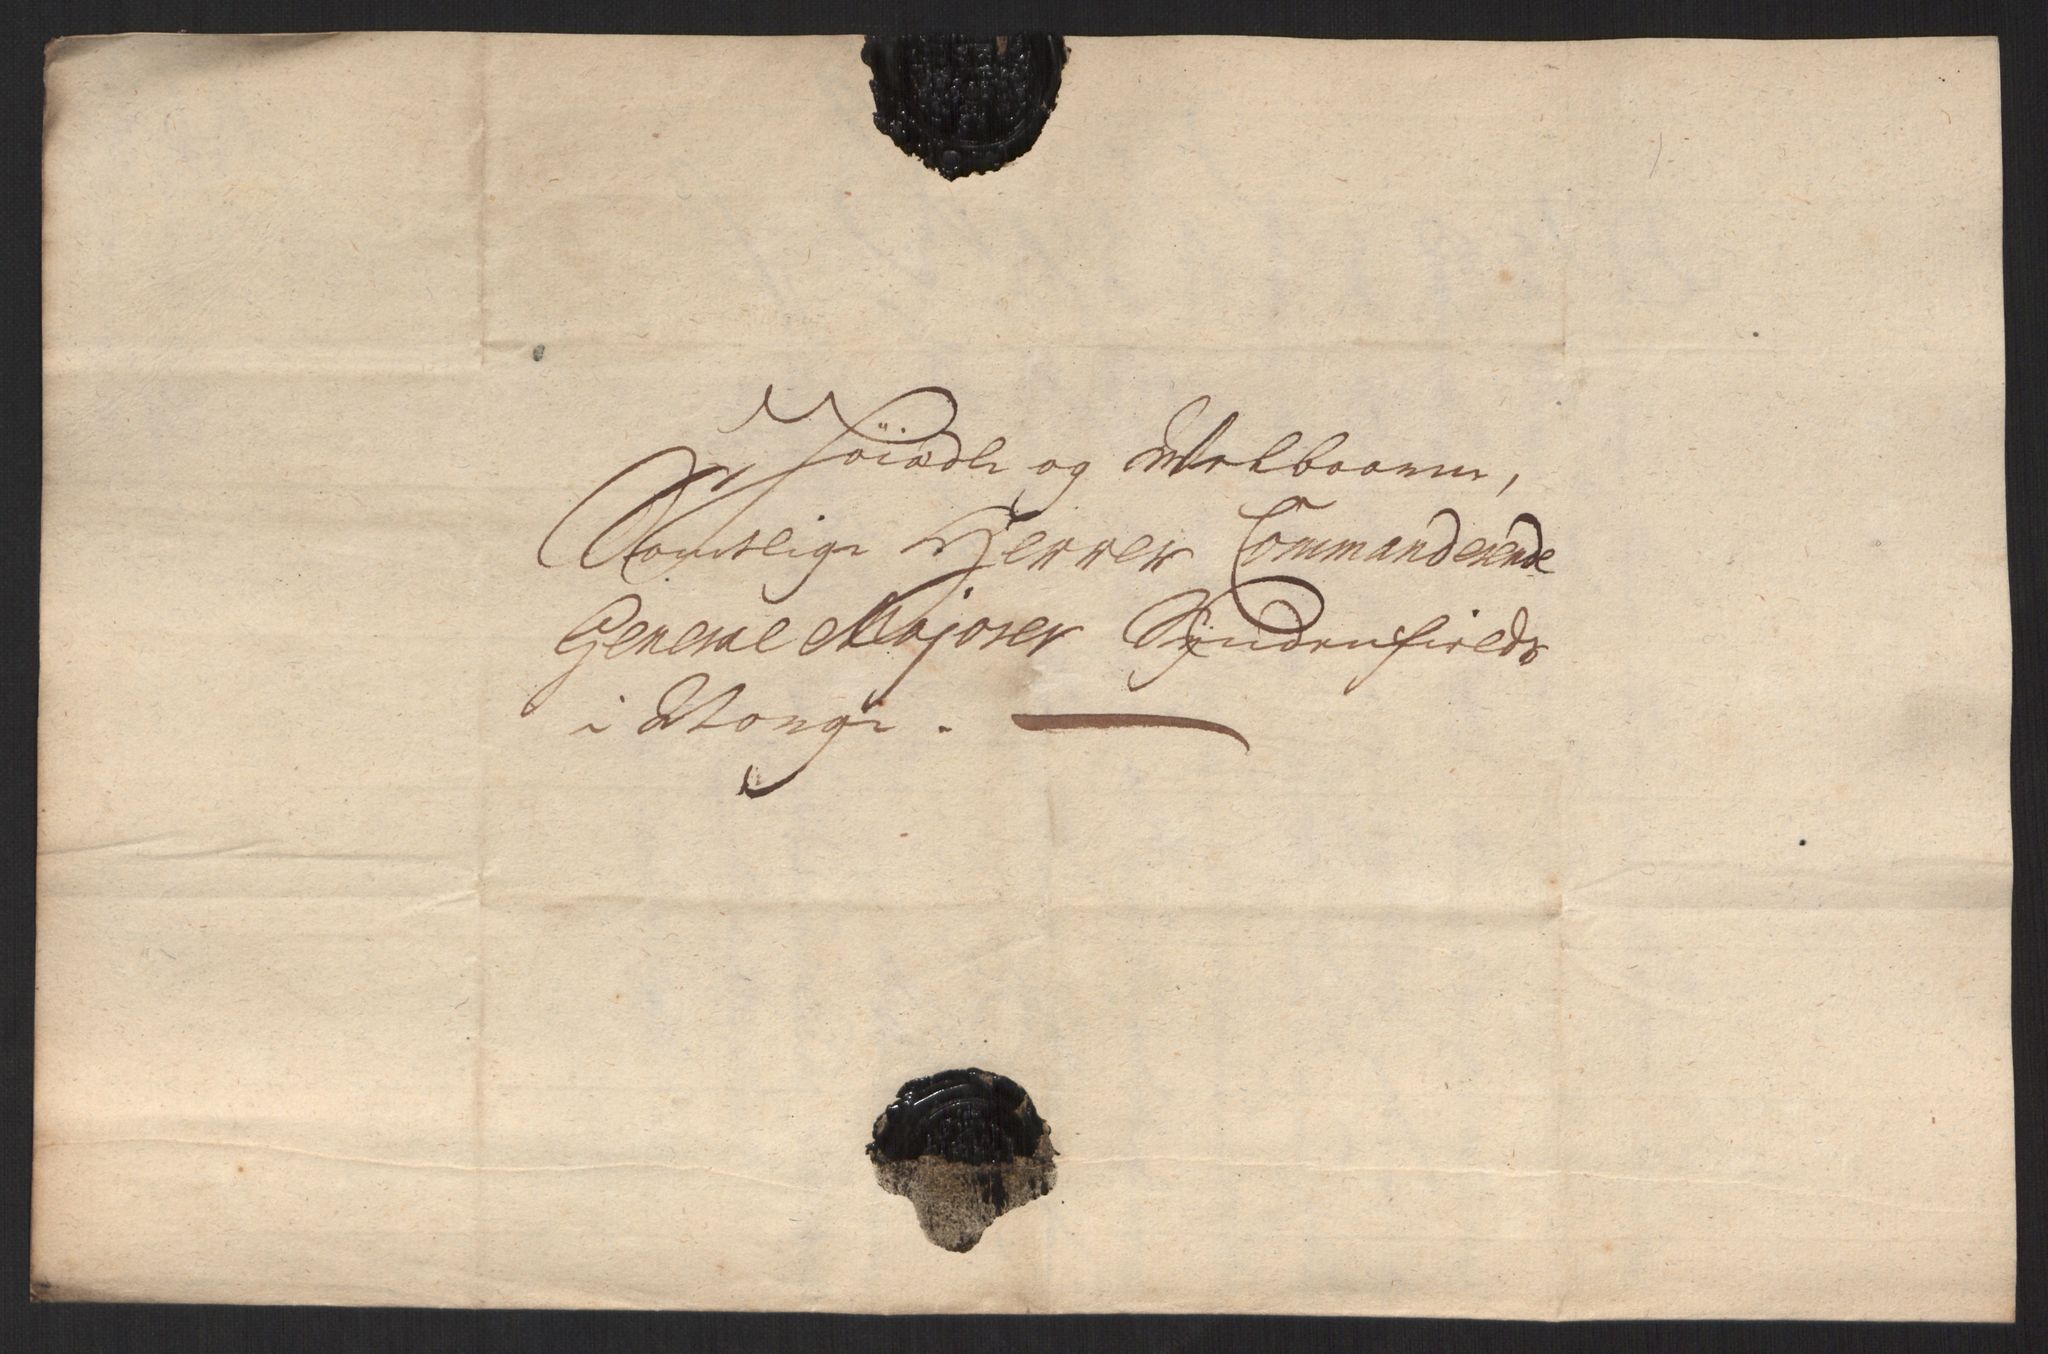 Høiædle og Welbaarne,
Samtlige Herrer Commanderende
General Majorer Syndenfields
i Norge.